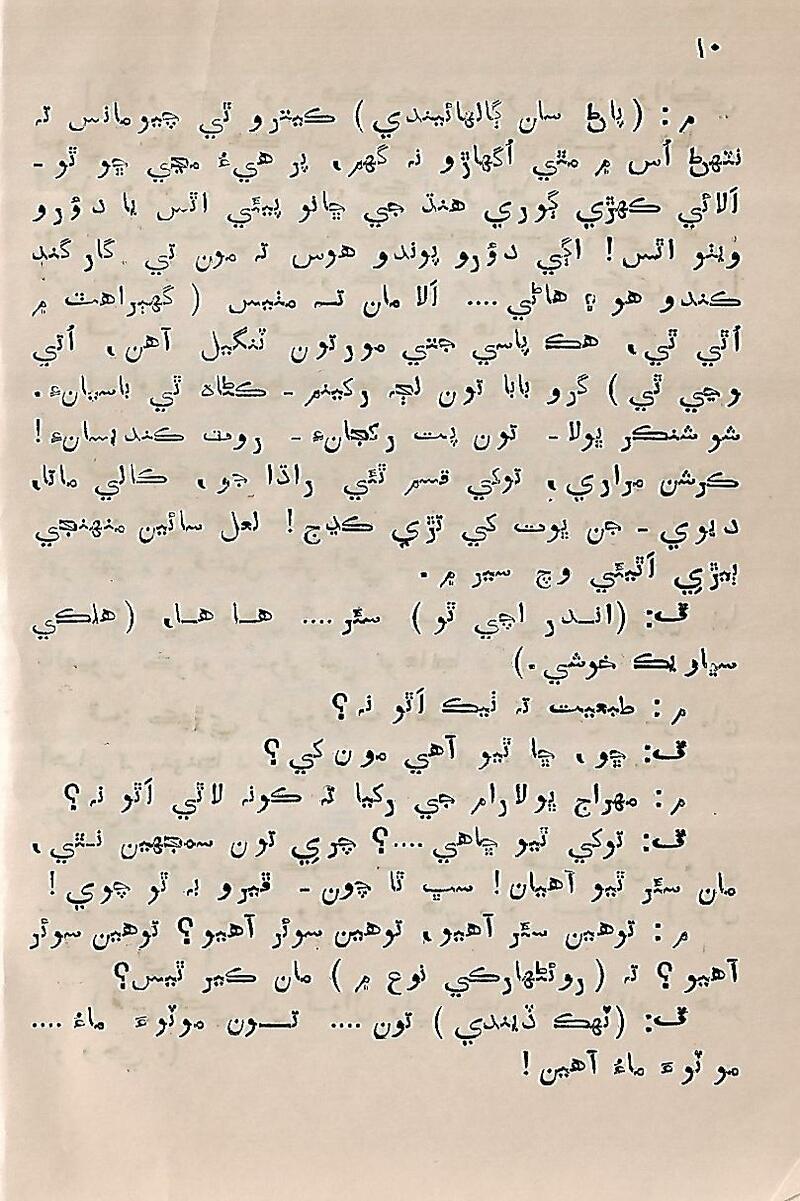 ١٠
م : (پاڻ سان ڳالهائيندي) ڪيترو ئي چيومانس ته
نتهڻ اُس ۾ مٿي اُگهاڙو نه گهم، پر هيءُ مڃي ڇو ٿو -
اَلائي ڪهڙي ڳوري هنڌ جي ڇانو پيئي اٿس يا دؤرو
ويٺو اٿس! اڳي دؤرو پوندو هوس ته مون تي گار گند
ڪندو هو ؟ هاڻي.... اَلا مان تـه مئيس ( گهٻراهٽ ۾
اُٿي ٿي، هڪ پاسي جتي مورتون ٽنگيل آهن، اُتي
وڃي ٿي) گرو بابا تون لڄ رکينم - ڪڻاه ٿي باسيانءِ.
شو شنڪر ڀولا - تون پت رکجانءِ - روٽ ڪنديسانءِ!
ڪرشن مراري، توکي قسم ٿئي راڌا جو، ڪالي ماتا،
ديوي - جن ڀوت کي تڙي ڪڍج! لعل سائين منهنجي
ٻيڙي اَٿيئي وچ سير ۾.
ٿ: (انـدر اچي ٿو) سئر.... هـا هـا، (هلڪي
سڀاويڪ خوشي.)
م : طبعيت ته ٺيڪ اَٿو نه؟
ٿ: ڇو، ڇا ٿيو آهي مون کي؟
م : مهراج ڀولارام جي رکيا ته ڪونه لاٿي اَٿو نه؟
ٿ: توکي ٿيو ڇاهي....؟ چري تون سمجهين نـٿي،
مان سئر ٿيو آهيان! سڀ ٿا چون - ڦيرو به ٿو چوي!
م : توهين سئر آهيو، توهين سوئر آهيو؟ توهين سوئر
آهيو؟ ته (روئڻهارڪي نوع ۾) مان ڪير ٿيس؟
ٿ: (ٽهڪ ڏيندي) تون.... تــون موٽوءَ ماءُ....
موٽوءَ ماءُ آهين!